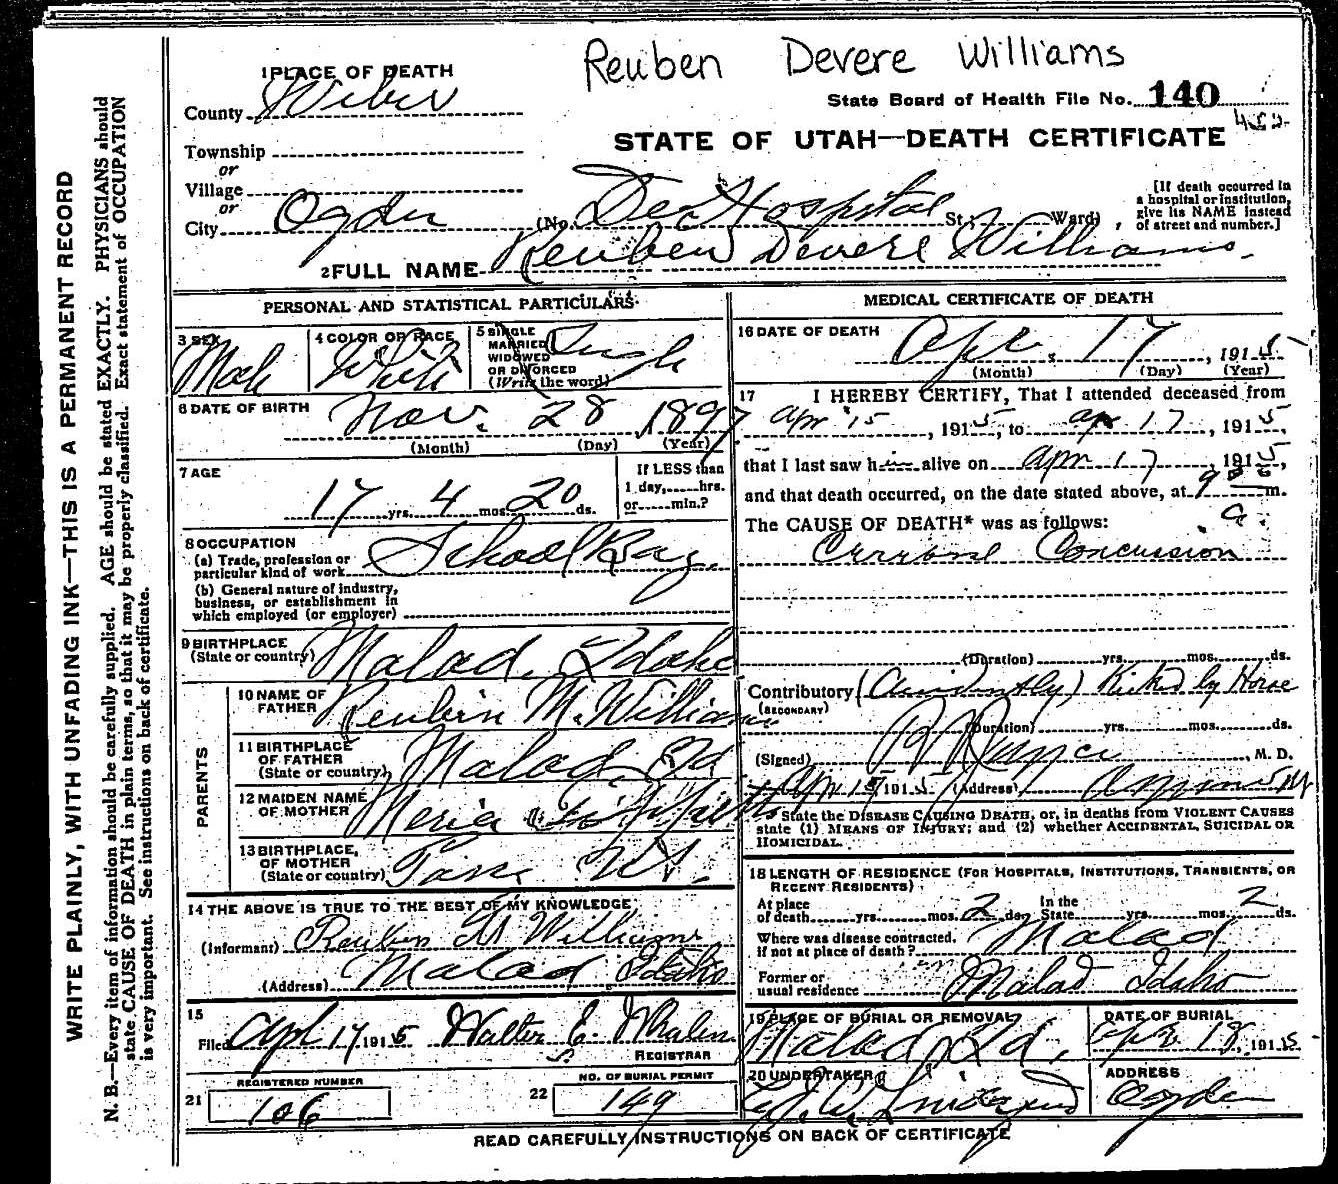 Reuben Devere Williams
1 PLACE OF DEATH
County Weber
State Board of Health File No. 140
452
STATE OF UTAH—DEATH CERTIFICATE
Township
or
Village
or
City Ogden (No. Dee Hospital St.; Ward)
[If death occurred in a hospital or institution, give its NAME instead of street and number.]
2 FULL NAME Reuben Devere Williams.
PERSONAL AND STATISTICAL PARTICULARS
3 SEX Male
4 COLOR OR RACE White
5 SINGLE MARRIED WIDOWED OR DIVORCED (Write the word) Single
6 DATE OF BIRTH Nov. 28, 1897
(Month) (Day) (Year)
7 AGE
17 yrs. 4 mos. 20 ds.
If LESS than 1 day, hrs. or min.?
8 OCCUPATION
(a) Trade, profession or particular kind of work School Boy.
(b) General nature of industry, business, or establishment in which employed (or employer)
9 BIRTHPLACE (State or country) Malad, Idaho
PARENTS
10 NAME OF FATHER Reuben M. Williams
11 BIRTHPLACE OF FATHER (State or country) Malad, Ida
12 MAIDEN NAME OF MOTHER
13 BIRTHPLACE, OF MOTHER (State or country)
14 THE ABOVE IS TRUE TO THE BEST OF MY KNOWLEDGE
(Informant) Reuben M Williams
(Address) Malad Idaho
15
Filed Apl 17 1915 Walter E. Whalen
REGISTRAR
REGISTERED NUMBER
21 106
NO. OF BURIAL PERMIT
22 149
MEDICAL CERTIFICATE OF DEATH
16 DATE OF DEATH
Apr. 17, 1915
(Month) (Day) (Year)
17 I HEREBY CERTIFY, That I attended deceased from
Apr 15, 1915, to Apr 17, 1915,
that I last saw him alive on Apr 17, 1915,
and that death occurred, on the date stated above, at 9 a. m.
The CAUSE OF DEATH* was as follows:
Concussion
(Duration) yrs. mos. ds.
Contributory (Accidently) Kicked by Horse
(SECONDARY)
(Duration) yrs. mos. ds.
(Signed) M. D.
1915 (Address)
State the DISEASE CAUSING DEATH, or, in deaths from VIOLENT CAUSES
state (1) MEANS OF INJURY; and (2) whether ACCIDENTAL, SUICIDAL OR
HOMICIDAL.
18 LENGTH OF RESIDENCE (FOR HOSPITALS, INSTITUTIONS, TRANSIENTS, OR
RECENT RESIDENTS)
At place of death yrs. mos. 2 ds. In the State yrs. mos. 2 ds.
Where was disease contracted, if not at place of death? Malad
Former or usual residence Malad Idaho
19 PLACE OF BURIAL OR REMOVAL Malad, Ida.
DATE OF BURIAL 1915
20 UNDERTAKER
ADDRESS Ogden
READ CAREFULLY INSTRUCTIONS ON BACK OF CERTIFICATE
WRITE PLAINLY, WITH UNFADING INK—THIS IS A PERMANENT RECORD
N. B.—Every item of information should be carefully supplied. AGE should be stated EXACTLY. PHYSICIANS should
state CAUSE OF DEATH in plain terms, so that it may be properly classified. Exact statement of OCCUPATION
is very important. See instructions on back of certificate.